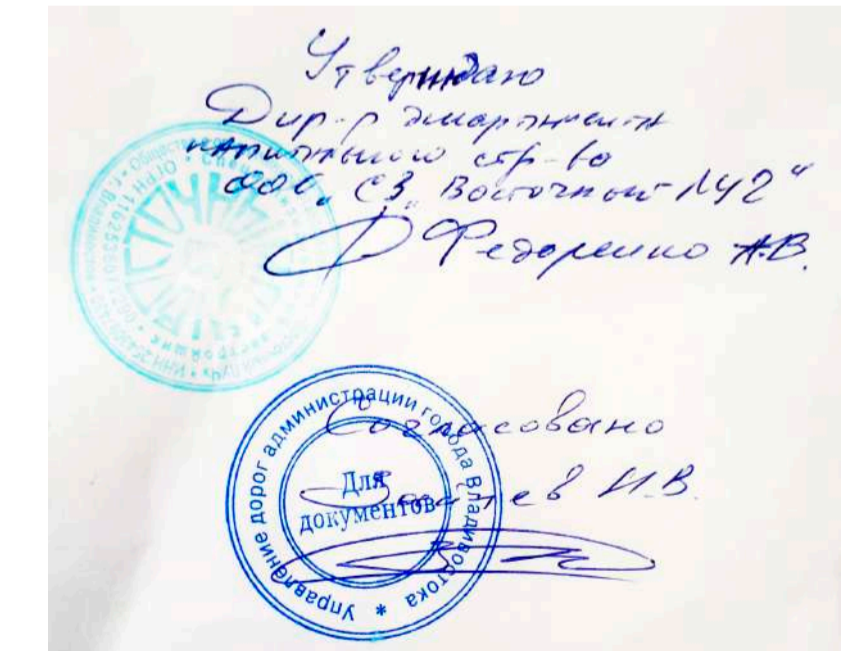 Утверждаю
Дир-р департамента
капитального стр-ва
ООО „СЗ „Восточный ЛУЧ"
Федоренко А.В.
Согласовано
Зайцев И.В.
Управление дорог администрации города Владивостока *
Для
документов